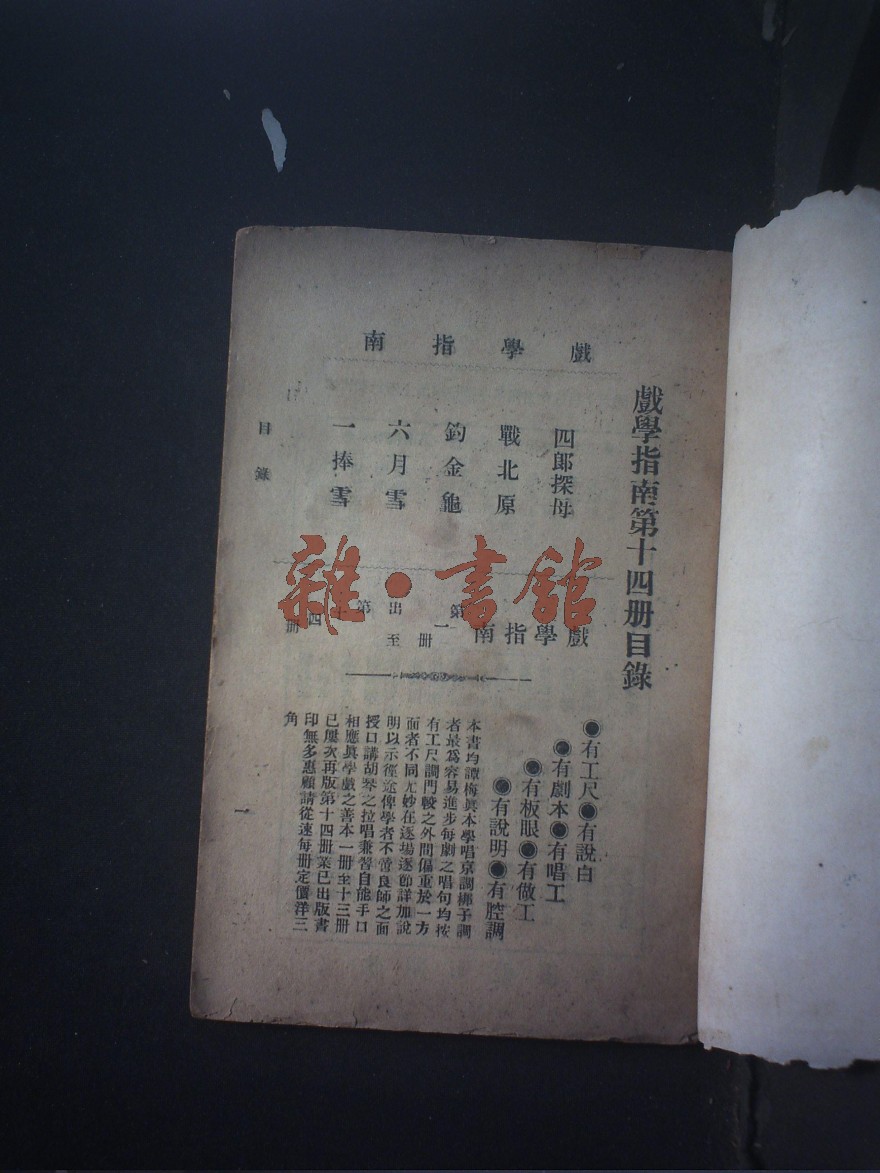 戲學指南第十四册目錄
戲學指南
四郎探母
戰北原
釣金龜
六月雪
一捧雪
目錄
戲學指南
第一册
出至
第十四册
●有工尺●有說白
●有劇本●有唱工
●有板眼●有做工
●有說明●有腔調
本書均譚梅眞本學唱京調梆子調
者最爲容易進步每劇之唱句均按
有工尺調門較之外間偏重於一方
面者不同尤妙在逐場逐節詳加說
明以示徑途俾學者不啻良師之面
授口講胡琴之拉唱兼習自能手口
相應眞學戲之善本一册至十三册
已屢次再版第十四册業已出版書
印無多惠顧請從速每册定價洋三
角
一
雜·書館